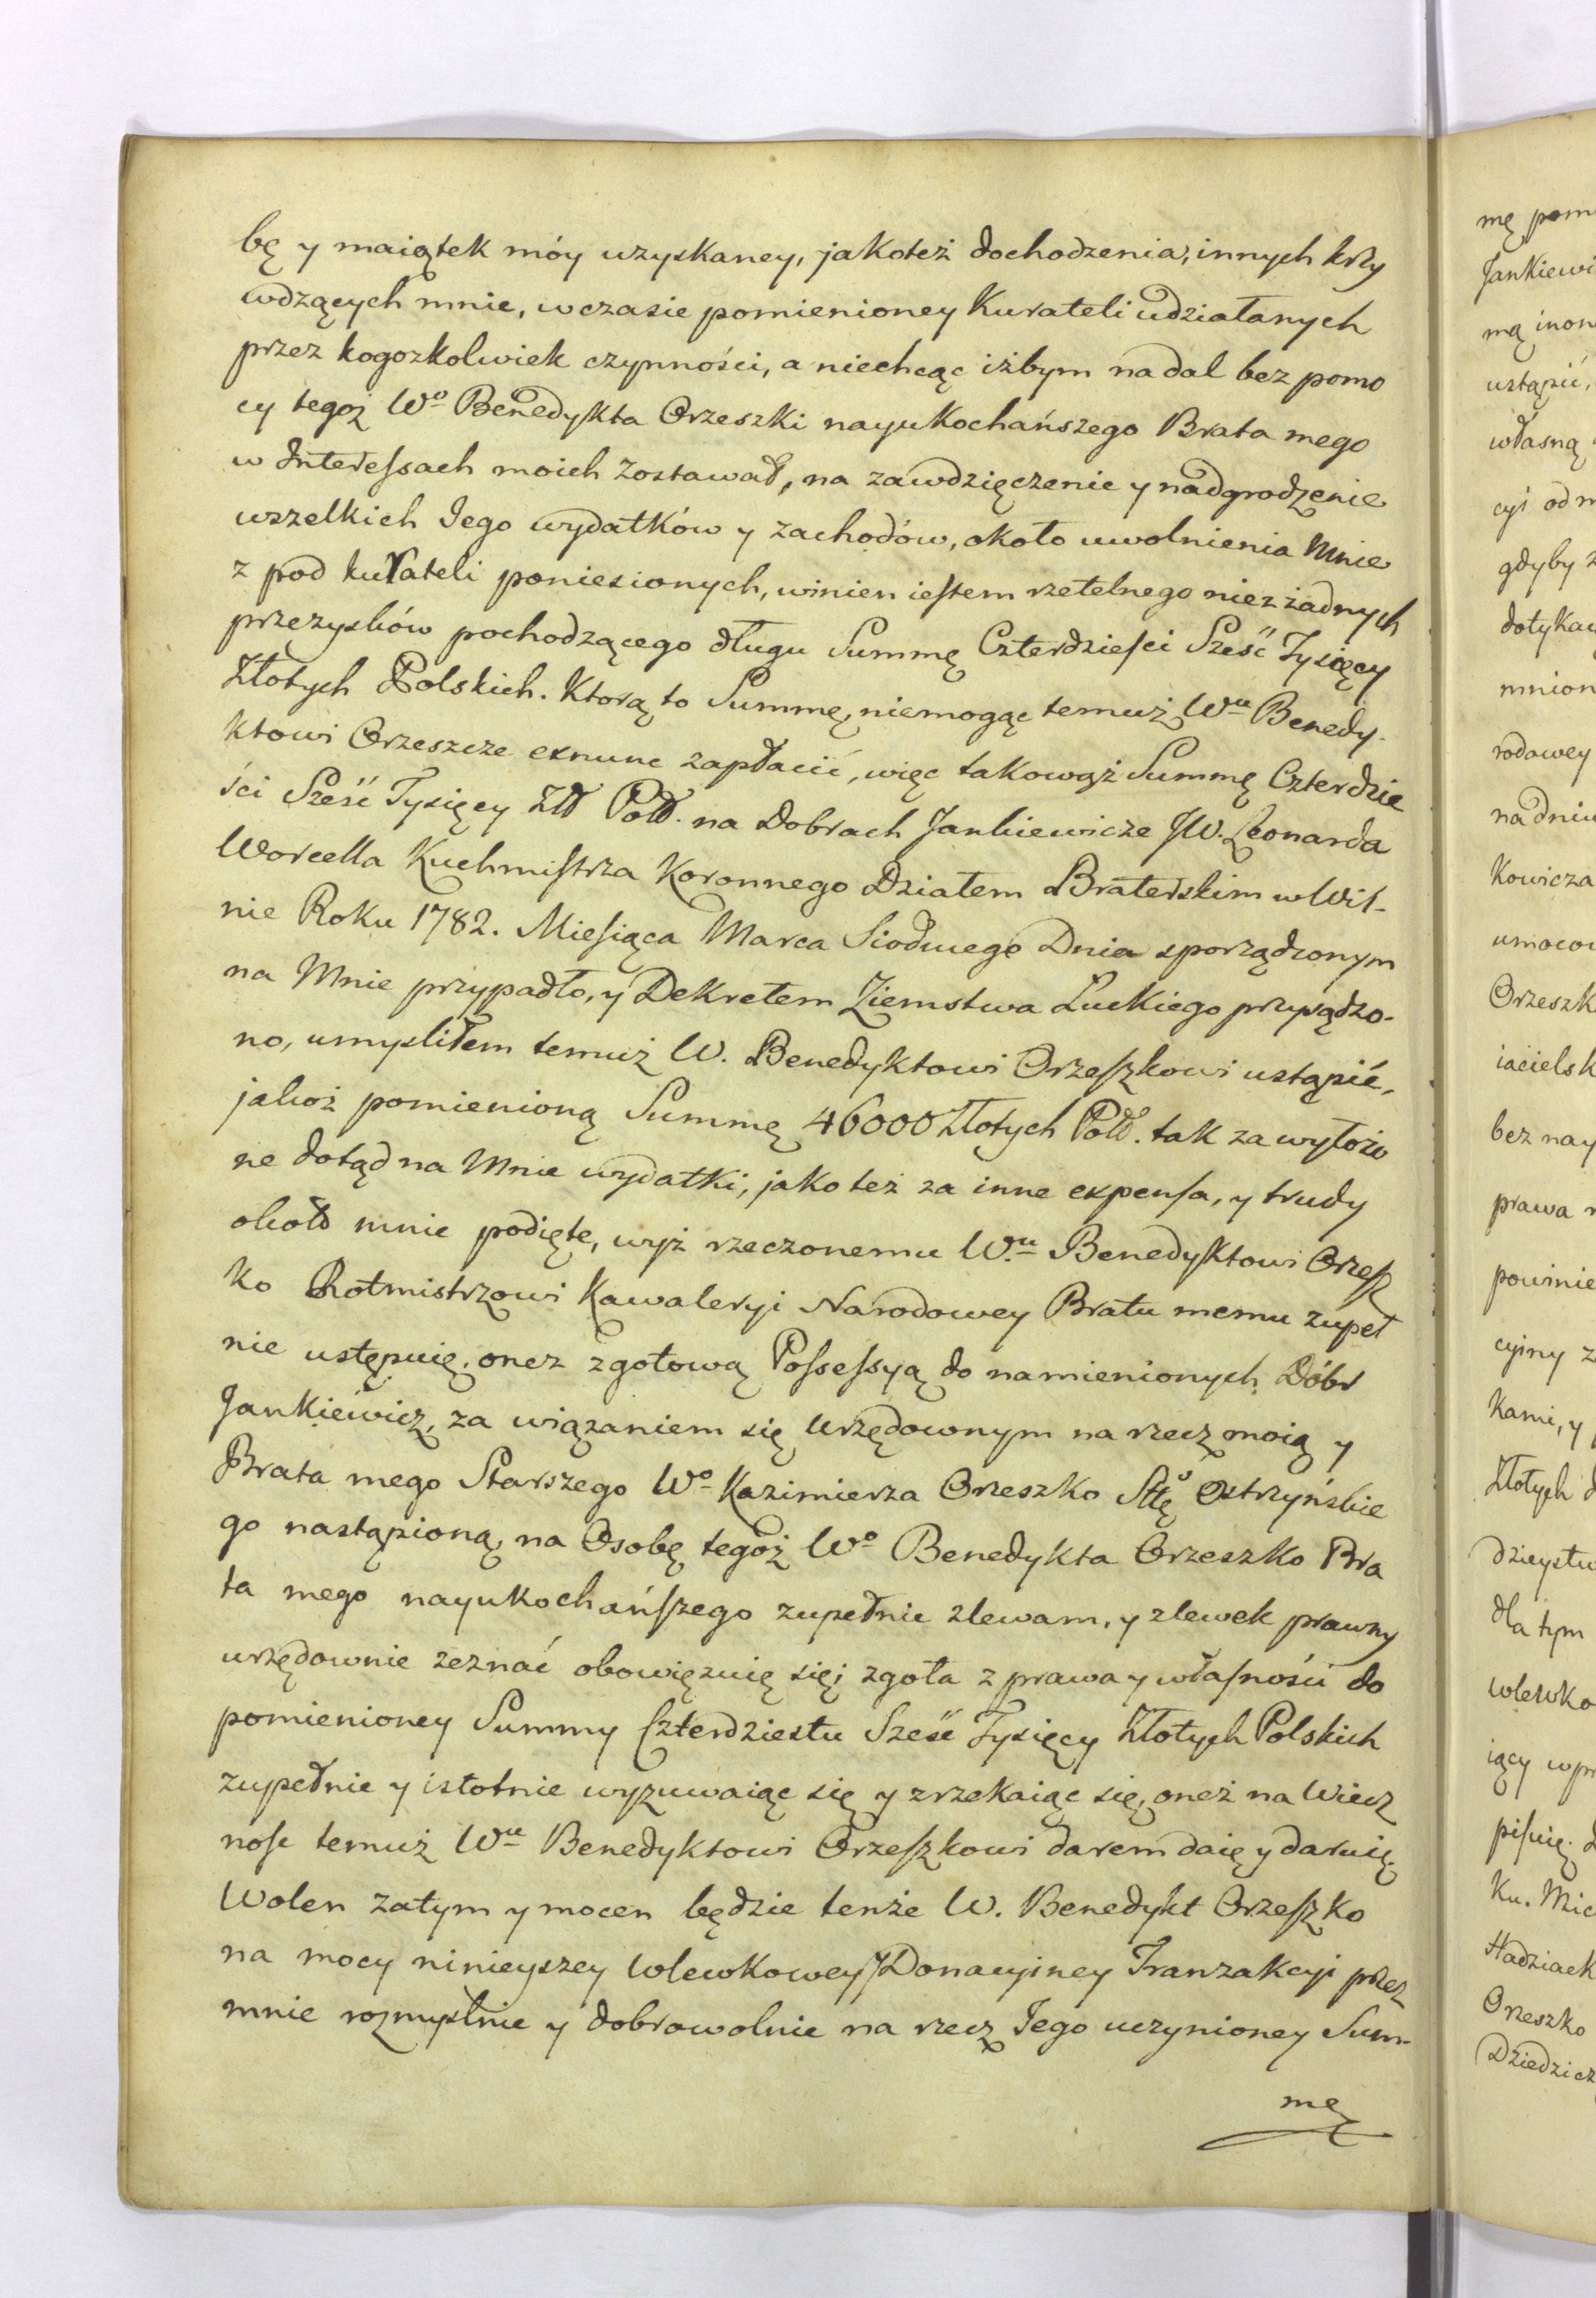 bę y maiątek móy uzyskaney, jakoteż dochodzenia, innych krzy
wdzących mnie, w czasie pomienioney Kurateli udziałanych
przez kogozkolwiek czynności, a niechcąc iżbym nadal bez pomo
cy tegoż Wo Benedykta Orzeszki nayukochańszego Brata mego
w Interessach moich zostawał, na zawdzięczenie y nadgrodzenie
wszelkich Jego wydatków y zachodów, około uwolnienia Mnie
z pod kurateli poniesionych, winien iestem rzetelnego niez żadnych
przezysków pochodzącego długu Summę Czterdzieści Sześć Tysięcy
Złotych Polskich. Ktorą to Summę, niemogąc temuż Wu Benedy-
ktowi Orzeszcze exnunc zapłacić, więc takowąż Summę Czterdzie
ści Sześć Tysięcy Zł Pol. na Dobrach Jankiewicze JW. Leonarda
Worcella Kuchmistrza Koronnego Działem Braterskim w Wil-
nie Roku 1782. Miesiąca Marca Siodmego Dnia sporządzonym
na Mnie przypadło, y Dekretem Ziemstwa Luckiego przysądzo-
no, umysliłem temuż W. Benedyktowi Orzeszkowi ustąpić,
jakoż pomienioną Summę 46000 Złotych Pol. tak za wyłożo
ne dotąd na Mnie wydatki, jako też za inne expensa, y trudy
około mnie podięte, wyż rzeczonemu W.u Benedyktowi Orzesz
ko Rotmistrzowi Kawaleryi Narodowey Bratu memu zupeł
nie ustępuię, onez z gotową Possessyą do namienionych Dóbr
Jankiewicz, za wiązaniem się Urzędownym na rzecz moią y
Brata mego Starszego Wo Kazimierza Orzeszko Sttę Ostrzyńskie
go nastąpioną, na Osobę tegoż Wo Benedykta Orzeszko Bra
ta mego nayukochańszego zupełnie zlewam, y zlewek prawny
urzędownie zeznać obowięzuię się; zgoła z prawa y własności do
pomienioney Summy Czterdziestu Sześć Tysięcy Złotych Polskich
zupełnie y istotnie wyzuwaiąc się y zrzekaiąc się, oneż na Wiecz
nosc temuż Wu Benedyktowi Orzeszkowi darem daię y daruię.
Wolen zatym y mocen będzie tenże W. Benedykt Orzeszko
na mocy ninieyszey Wlewkowey y Donacyiney Tranzakcyi przez
mnie rozmyslnie y dobrowolnie na rzecz Jego uczynioney Sum-
mę
mę pom
Jankiewi
mą inon
ustąpić,
własną
cyś od m
gdyby z
dotykaj
mnion
rodowey
na dniu
Kowicza
umocow
Orzeszk
iacielsk
bez nay
prawa
powinie
cyiny z
Kami, y
Złotych
dzieystw
dla tym
Wlewko
iący wpr
pisuię.
Ku. Mie
Hadziack
Orzeszko
Dziedzicz